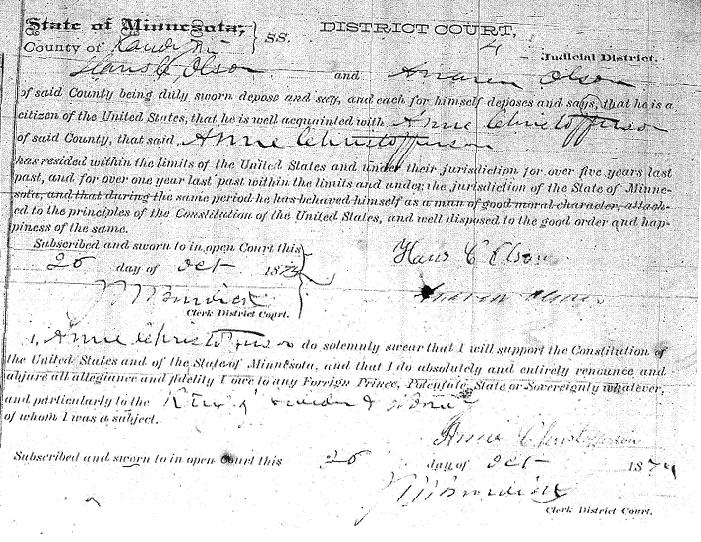 State of Minnesota, } SS. DISTRICT COURT,
County of 4 Judicial District.
Hans C. Olson and Olson
of said County being duly sworn depose and say, and each for himself deposes and says, that he is a
citizen of the United States, that he is well acquainted with Arne Christofferson
of said County, that said Arne Christofferson
has resided within the limits of the United States and under their jurisdiction for over five years last
past, and for over one year last past within the limits and under the jurisdiction of the State of Minne-
sota, and that during the same period he has behaved himself as a man of good moral character, attach-
ed to the principles of the Constitution of the United States, and well disposed to the good order and hap-
piness of the same.
Subscribed and sworn to in open Court this
26 day of Oct 187
Hans C Olson
Clerk District Court.
I, Arne Christofferson do solemnly swear that I will support the Constitution of
the United States and of the State of Minnesota, and that I do absolutely and entirely renounce and
abjure all allegiance and fidelity I owe to any Foreign Prince, Potentate, State or Sovereignty whatever,
and particularly to the King of Sweden &
of whom I was a subject.
Arne Christofferson
Subscribed and sworn to in open Court this 26 day of Oct 1874
Clerk District Court.